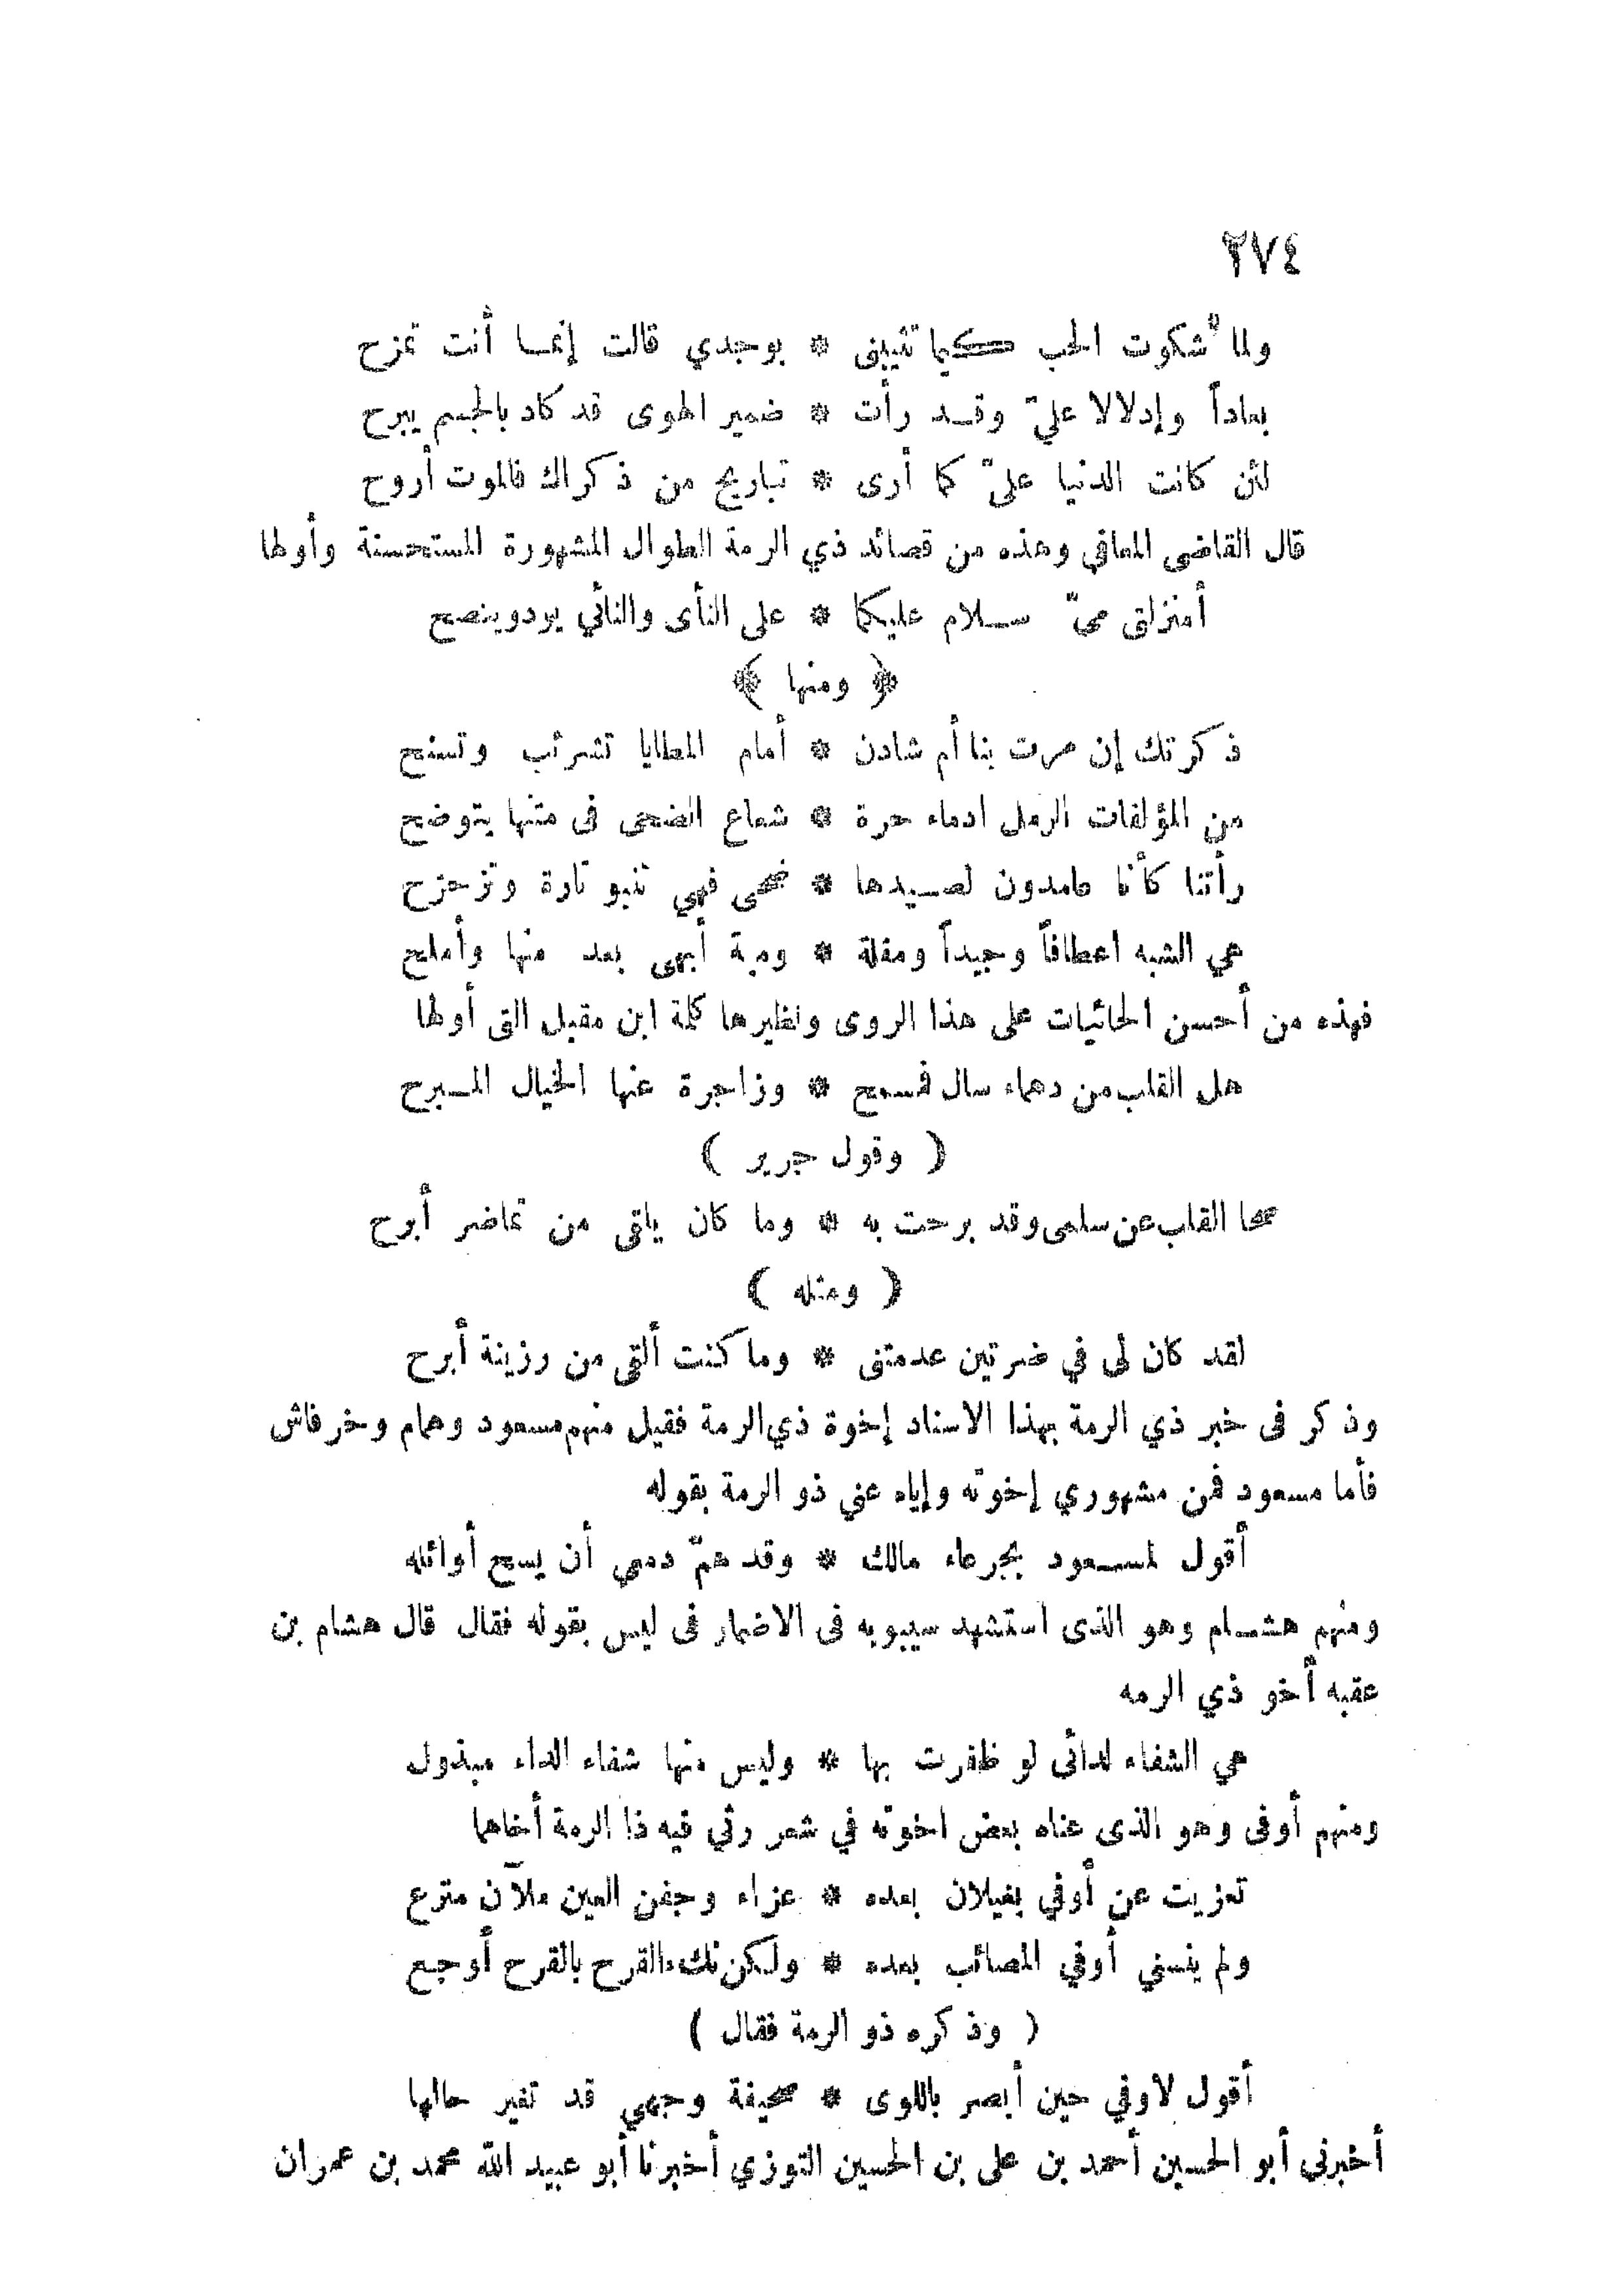 ٢٧٤
ولما شكوت الحب كيما تثيبنى * بوجدي قالت إنما أنت تمزح
بعاداً وإدلالا عليّ وقد رأت * ضمير الهوى قد كاد بالجسم يبرح
لئن كانت الدنيا عليّ كما أرى * تباريح من ذكراك فالموت أروح
قال القاضى المعافي وهذه من قصائد ذي الرمة الطوال المشهورة المستحسنة وأولها
أمنزلتى ميّ سلام عليكما * على النأى والنائي يودوينصح
﴿ ومنها ﴾
ذكرتك إن مرت بنا أم شادن * أمام المطايا تشرئب وتسنح
من المؤلفات الرمل ادماء حرة * شعاع الضحى فى متنها يتوضح
رأتنا كأنا عامدون لصيدها * ضحى فهي تنبو تارة وتزحزح
هي الشبه اعطافاً وجيداً ومقلة * ومية أبهى بعد منها وأملح
فهذه من أحسن الحائيات على هذا الروى ونظيرها كلمة ابن مقبل التى أولها
هل القلب من دهماء سال فمسمح * وزاجرة عنها الخيال المبرح
( وقول جرير )
صحا القلب عن سلمى وقد برحت به * وما كان ياقى من تماضر أبرح
( ومثله )
لقد كان لى في ضرتين عدمتنى * وما كنت ألقى من رزينة أبرح
وذكر فى خبر ذي الرمة بهذا الاسناد إخوة ذي الرمة فقيل منهم مسعود وهمام وخرفاش
فأما مسعود فمن مشهوري إخوته وإياه عني ذو الرمة بقوله
أقول لمسعود بجرعاء مالك * وقد همّ دمعي أن يسح أوائله
ومنهم هشام وهو الذى استشهد سيبويه فى الاضمار فى ليس بقوله فقال قال هشام بن
عقبه أخو ذي الرمه
هي الشفاء لدائى لو ظفرت بها * وليس منها شفاء الداء مبذول
ومنهم أوفى وهو الذى عناه بعض اخوته في شعر رثي فيه ذا الرمة أخاهما
تعزيت عن أوفي بغيلان بعده * عزاء وجفن العين ملآن مترع
ولم ينسني أوفي المصائب بعده * ولكن نكء القرح بالقرح أوجع
( وذكره ذو الرمة فقال )
أقول لاوفي حين أبصر باللوى * صحيفة وجهي قد تغير حالها
أخبرني أبو الحسين أحمد بن على بن الحسين التوزي أخبرنا أبو عبيد الله محمد بن عمران